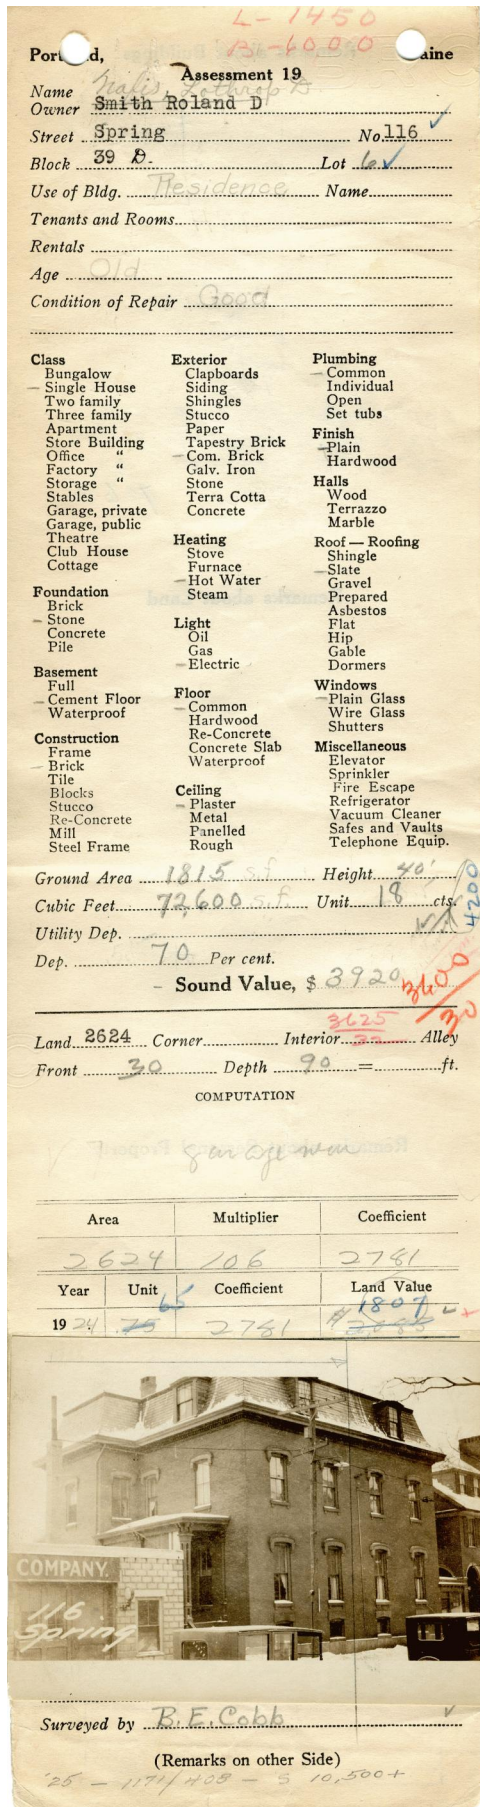 L-1450
B-6000
Portland, Maine
Assessment 19
Name
Lothrop D.
Owner Smith Roland D
Street Spring No. 116 ✓
Block 39 D. Lot 6 ✓
Use of Bldg. Residence Name
Tenants and Rooms
Rentals
Age Old
Condition of Repair Good
Class
Bungalow
– Single House
Two family
Three family
Apartment
Store Building
Office "
Factory "
Storage "
Stables
Garage, private
Garage, public
Theatre
Club House
Cottage
Foundation
Brick
– Stone
Concrete
Pile
Basement
Full
– Cement Floor
Waterproof
Construction
Frame
– Brick
Tile
Blocks
Stucco
Re-Concrete
Mill
Steel Frame
Exterior
Clapboards
Siding
Shingles
Stucco
Paper
Tapestry Brick
– Com. Brick
Galv. Iron
Stone
Terra Cotta
Concrete
Heating
Stove
Furnace
– Hot Water
Steam
Light
Oil
Gas
– Electric
Floor
– Common
Hardwood
Re-Concrete
Concrete Slab
Waterproof
Ceiling
– Plaster
Metal
Panelled
Rough
Plumbing
– Common
Individual
Open
Set tubs
Finish
– Plain
Hardwood
Halls
Wood
Terrazzo
Marble
Roof — Roofing
Shingle
– Slate
Gravel
Prepared
Asbestos
Flat
Hip
Gable
Dormers
Windows
– Plain Glass
Wire Glass
Shutters
Miscellaneous
Elevator
Sprinkler
Fire Escape
Refrigerator
Vacuum Cleaner
Safes and Vaults
Telephone Equip.
Ground Area 1815 s.f. Height 40'
Cubic Feet 72,600 s.f. Unit 18 cts.
4200
Utility Dep.
Dep. 70 Per cent.
– Sound Value, $ 3920
3600
30
3625
Land 2624 Corner Interior Alley
Front 30 Depth 90 = ft.
COMPUTATION
garage new
Area Multiplier Coefficient
2624 106 2781
Year Unit Coefficient Land Value
65 1807
1924 75 2781
COMPANY.
116
Spring
Surveyed by B.E. Cobb ✓
(Remarks on other Side)
'25 - 1171/408 - S 10,500+